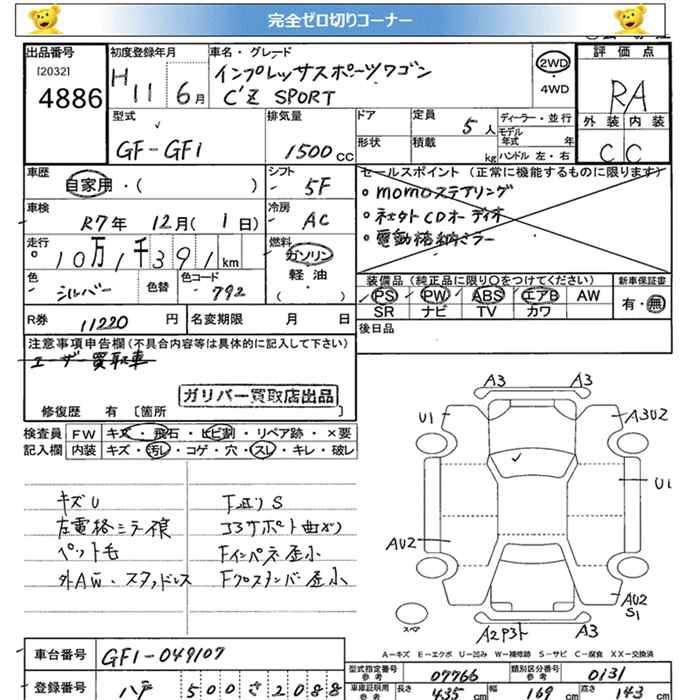 完全ゼロ切りコーナー
出品番号 初度登録年月 車名・グレード 評価点
[2032] H11 6月 インプレッサスポーツワゴン 2WD RA
4886 C'Z SPORT 4WD
外装 内装
型式 排気量 ドア 定員 5人 ディーラー・並行 C C
GF-GF1 1500cc 形状 積載 kg モデル年式 年
ハンドル 左・右
車歴 自家用・( ) シフト 5F セールスポイント (正常に機能するものに限ります)
○momoステアリング
車検 R7年 12月(1日) 冷房 AC ○ネェクトCDオーディオ
走行 10万1千391km 燃料 ガソリン ○電動格納ミラー
軽油
( )
色 シルバー 色替 色コード 792 装備品 (純正品に限り○をつけてください) 新車保証書
PS PW ABS エアB AW 有・無
SR ナビ TV カワ
R券 11220円 名変期限 月 日 後日品
注意事項申告欄(不具合内容等は具体的に記入して下さい)
ユーザー買取車
ガリバー買取店出品
修復歴 有 〔箇所 〕
検査員 FW キズ・飛石・ヒビ割・リペア跡・×要
記入欄 内装 キズ・汚レ・コゲ・穴・スレ・キレ・破レ
キズU
左電格ミラー不良
ペット毛
外AW、スタッドレス
下廻りS
コアサポート曲がり
Fインパネ歪小
Fクロスメンバー歪小
A3 A3
U1 A3U2
U1
AU2
AU2
S1
スペア A2P3ト A3
A=キズ E=エクボ U=凹み W=補修跡 S=サビ C=腐食 XX=交換済
車台番号 GF1-049107
型式指定番号 参考 07766 類別区分番号 参考 0131
登録番号 八戸 500 さ 2088
車庫証明用 参考 長さ 435cm 幅 169cm 高さ 143cm